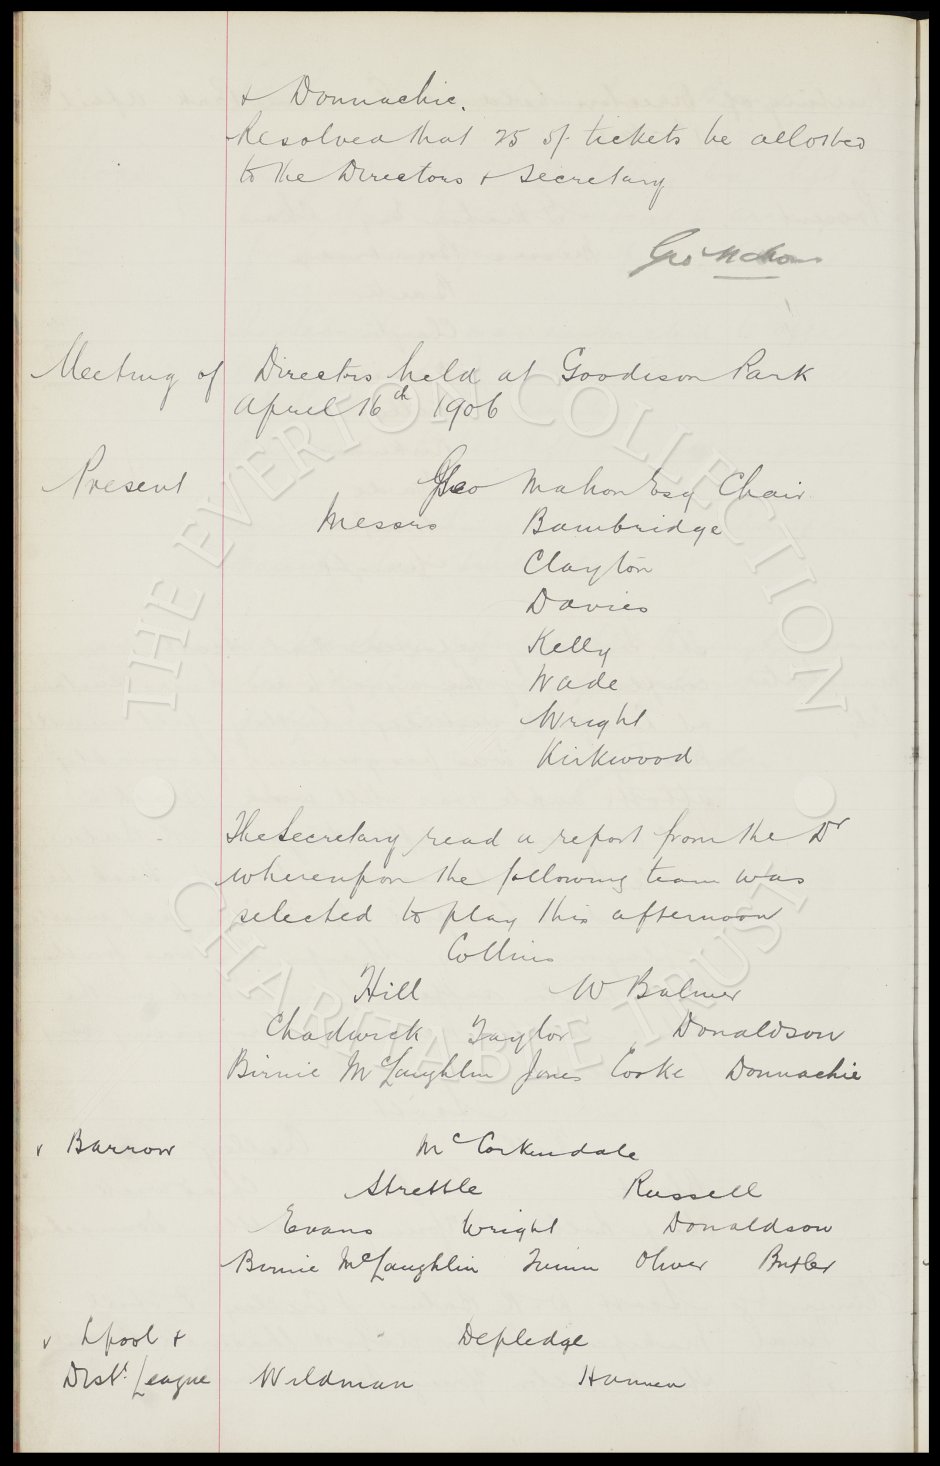 & Donnachie.
Resolved that 25 5/- tickets be allotted
to the Directors & Secretary
Geo Mahon
Meeting of Directors held at Goodison Park
April 16th 1906
Present Geo Mahon Esq Chair
Messrs Bainbridge
Clayton
Davies
Kelly
Wade
Wright
Kirkwood
The Secretary read a report from the Dr
whereupon the following team was
selected to play this afternoon
Collins
Hill W Balmer
Chadwick Taylor Donaldson
Birnie McLaughlin Jones Cooke Donnachie
v Barrow McCorkindale
Strettle Russell
Evans Wright Donaldson
Birnie McLaughlin Quinn Oliver Butler
v Lpool & Depledge
Dist. League Wildman Hannen
THE EVERTON COLLECTION
CHARITABLE TRUST